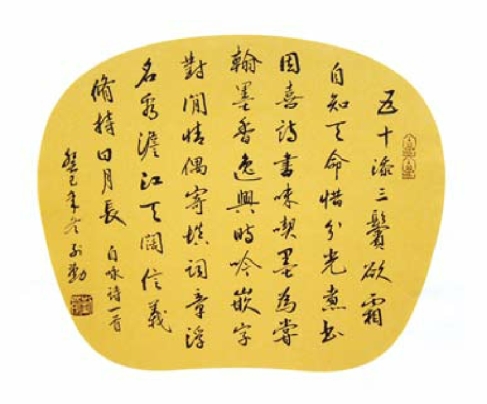 五十添三鬢欲霜
自知天命惜分光煮书
因喜詩書味喫墨為嘗
翰墨香逸興時吟嵌字
對閒情偶寄填詞章浮
名看澹江天闊信義
脩持日月長 自咏詩一首
癸巳年冬 勤